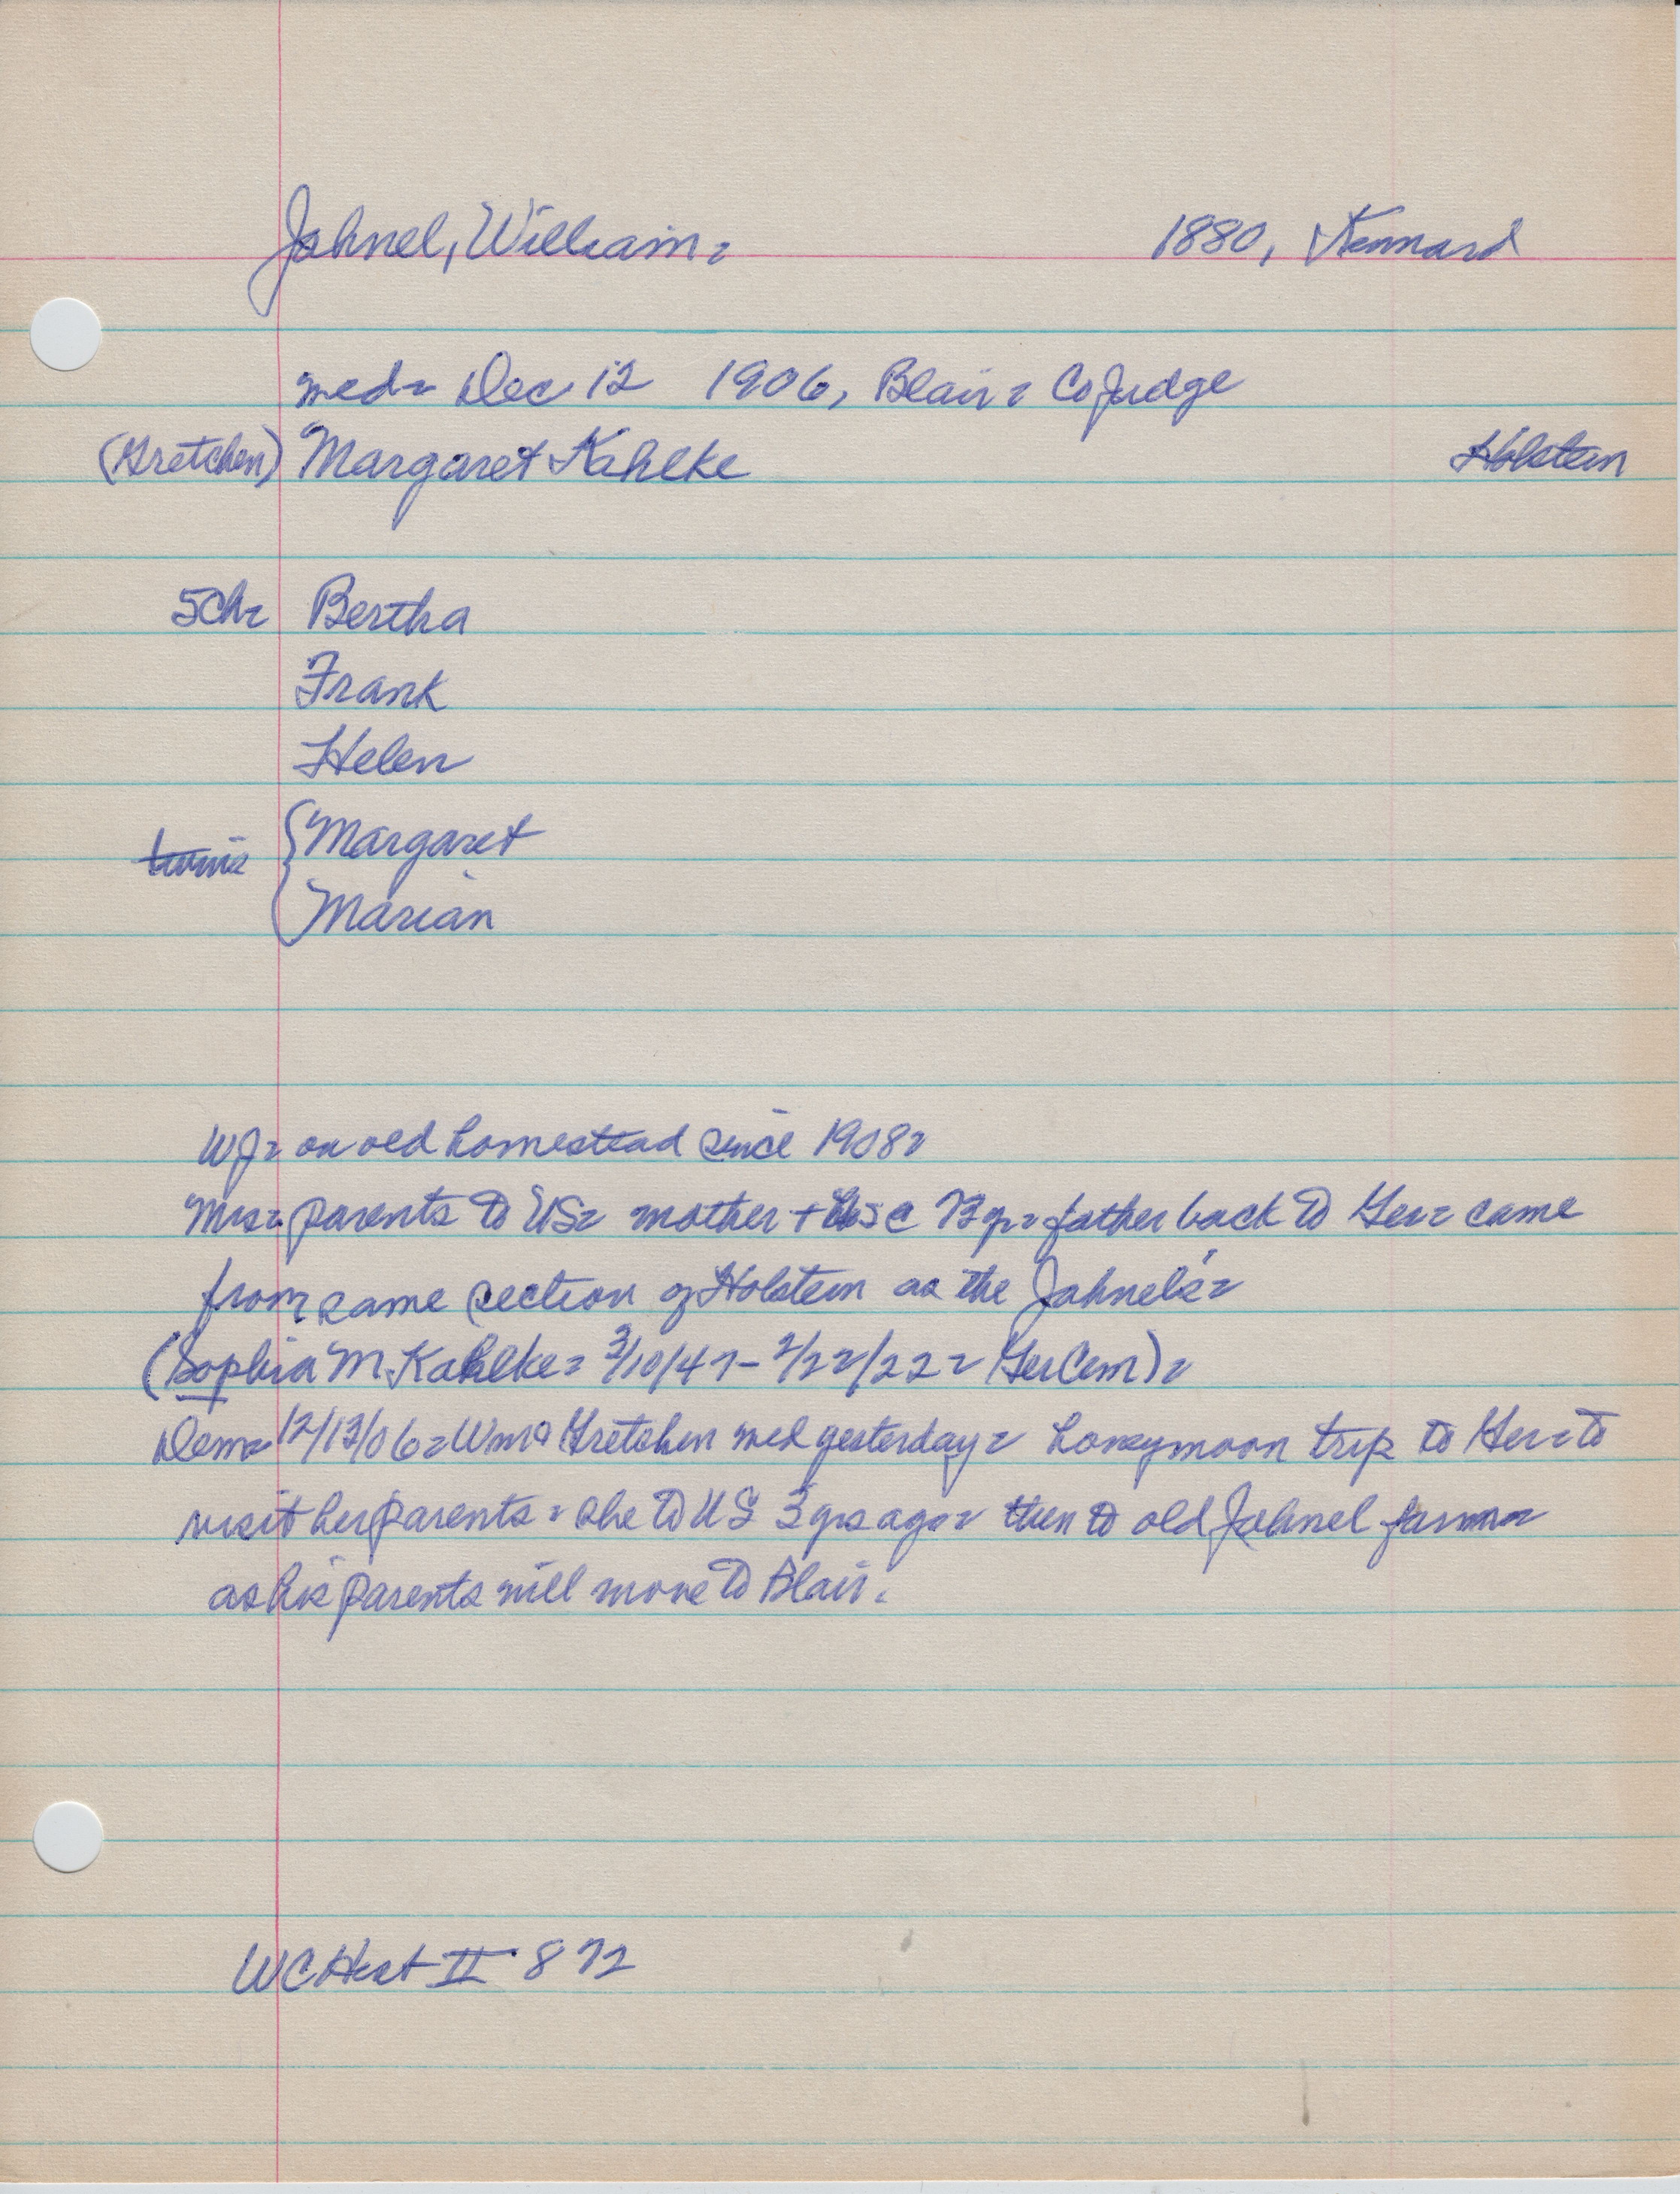 Jahnel, William - 1880, Kennard
med - Dec 12 1906, Blair - Co Judge
(Gretchen) Margaret Kahlke Holstein
5 Ch - Bertha
Frank
Helen
twins { Margaret
Marian
WJ - on old homestead since 1908 -
Mrs - parents to US - mother + father back to Ger - came
from same section of Holstein as the Jahnel's -
(Sophia M. Kahlke - 3/10/47 - 2/22/22 - Ger Cem) -
Dem - 12/13/06 - Wm & Gretchen med yesterday - honeymoon trip to Ger - to
visit her parents - she to US 3 yrs ago - then to old Jahnel farm -
as his parents will move to Blair.
WC Hist II 872